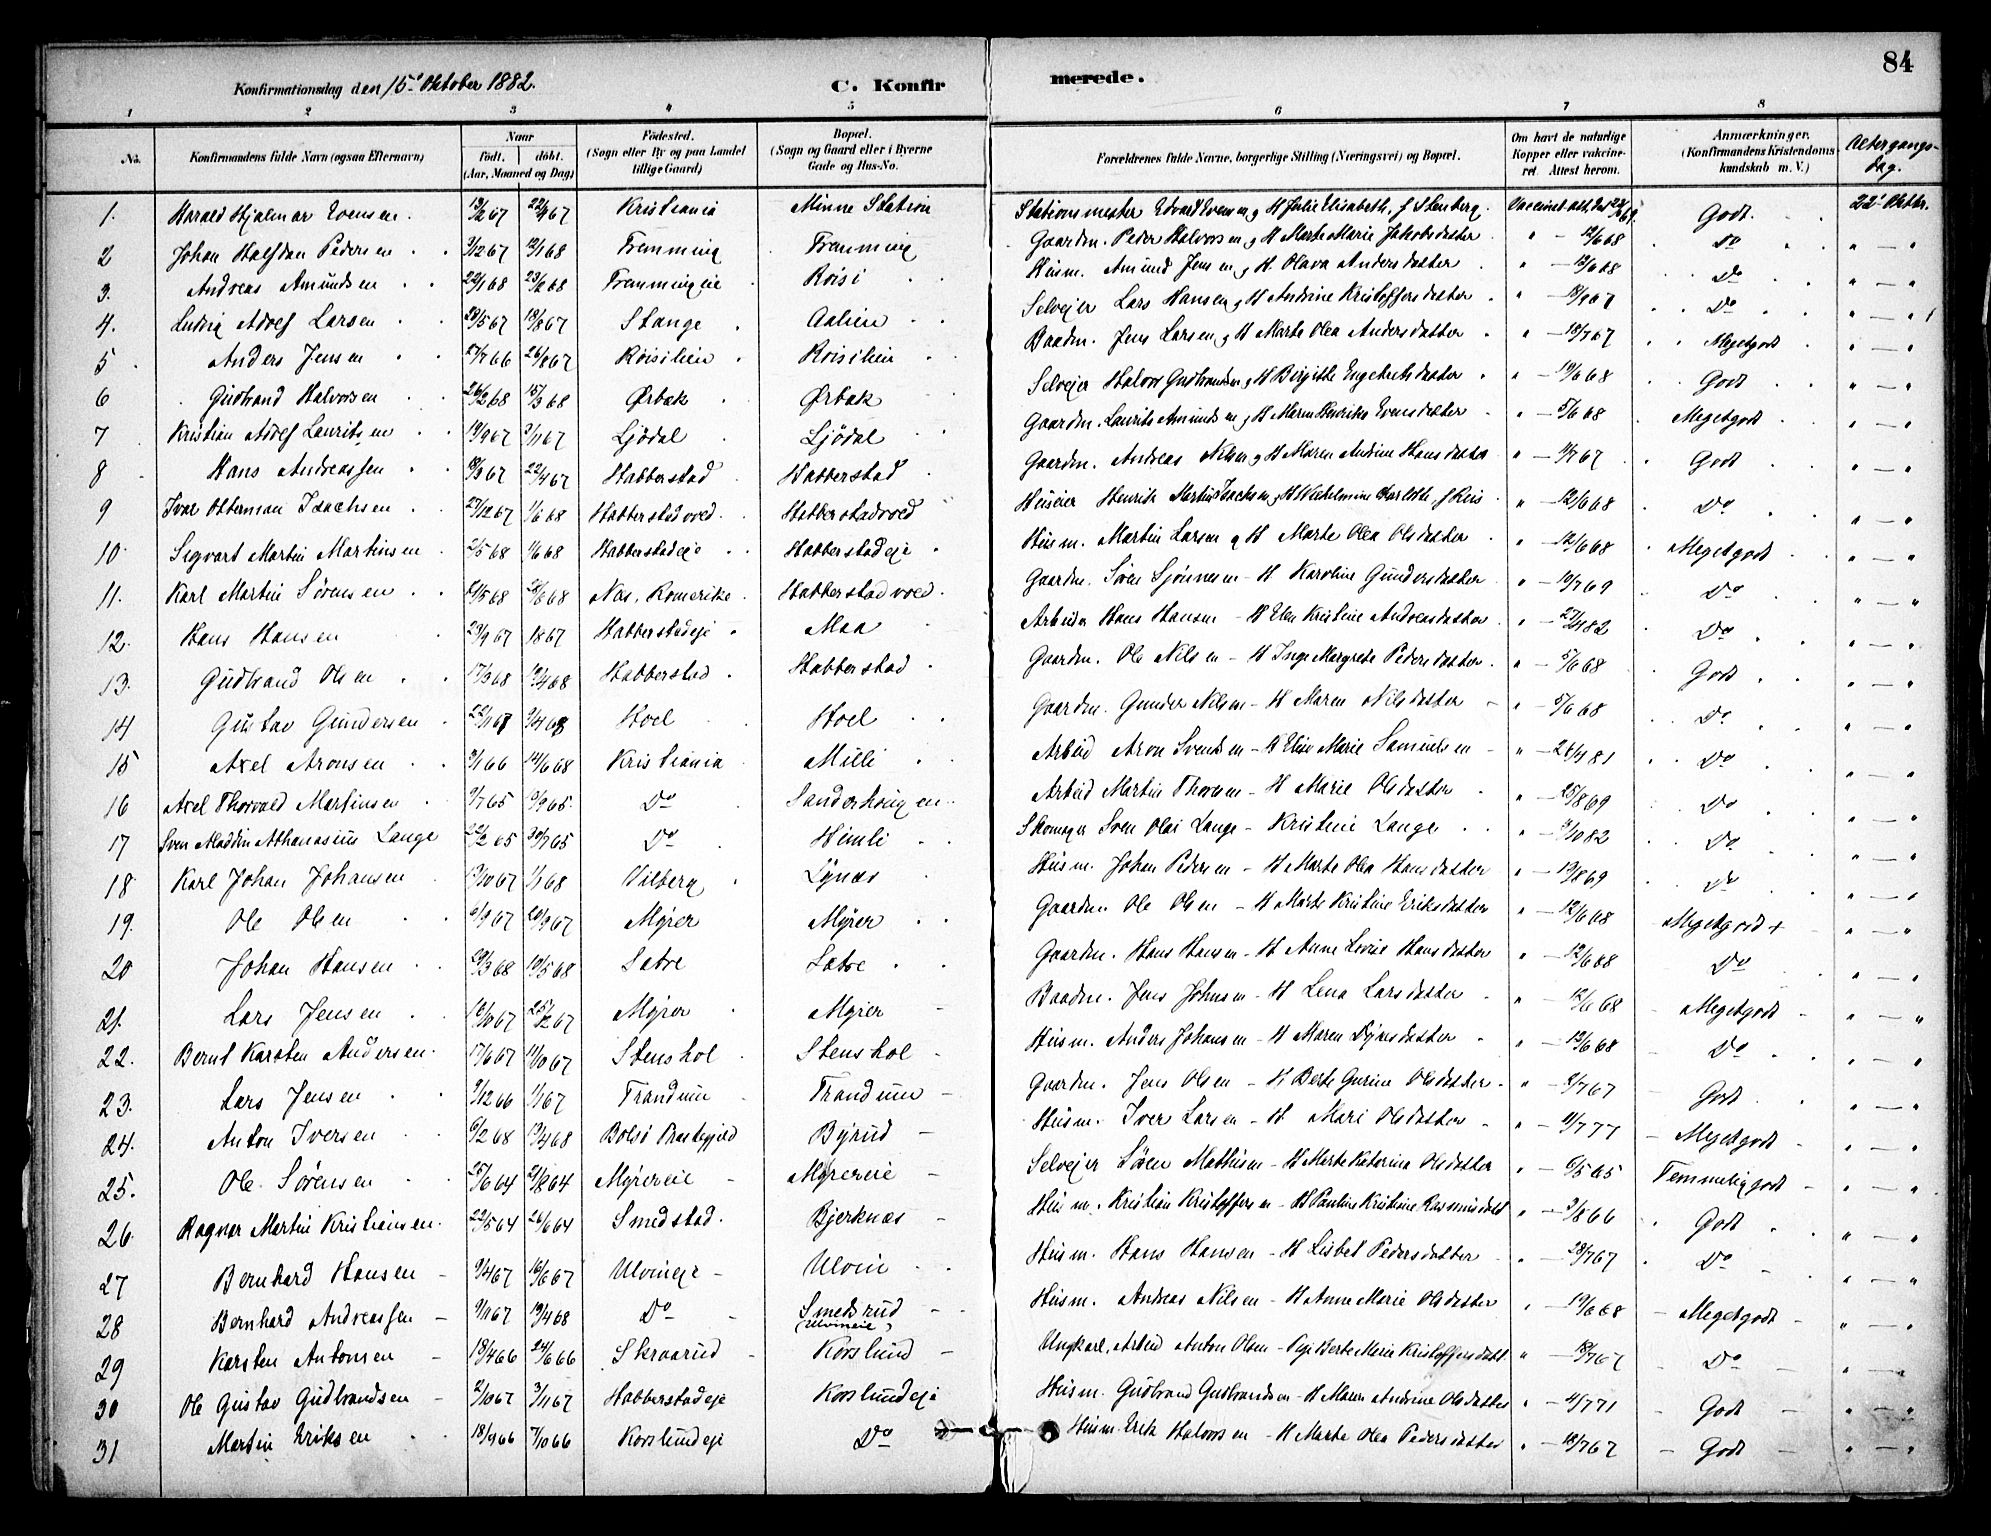 84
Konfirmationsdag den 15de Oktober 1882.
C. Konfirmerede.
1 2 3 4 5 6 7 8
No. Konfirmandens fulde Navn (ogsaa Efternavn) Naar født. døbt. (Aar, Maaned og Dag) Fødested. (Sogn eller By og paa Landet tillige Gaard) Bopæl. (Sogn og Gaard eller i Byerne Gade og Hus-No. Forældrenes fulde Navne, borgerlige Stilling (Næringsvei) og Bopæl. Om havt de naturlige Kopper eller vaccineret. Attest herom. Anmærkninger. (Konfirmandens Kristendomskundskab m. V.) Altergangsdag.
1. Harald Hjalmar Evensen. 13/2 67 22/4 67 Kristiania Minne Station Stationsmester Edvard Evensen og H Julie Elisabeth f. Stenberg Godt 22' Oktbr.
2 Johan Halfdan Pedersen 3/12 67 12/1 68 Fremming Fremming Gaardm. Peder Halvorsen og H Marte Marie Jakobsdatter " - 12/6 68 Do " — "
3. Andreas Amundsen 22/1 68 23/2 68 Fremmingeie Roisi Husm. Amund Jensen og H. Olava Andersdatter " - 12/6 68 Do " — "
4. Ludvig Adolf Larsen 29/5 67 18/8 67 Stange Aalien Selveier Lars Hansen og H Andrine Kristoffersdatter Do " — "
5 Anders Jensen 27/7 66 26/8 67 Roisilien Roisilien Baadm. Jens Larsen og H Marte Olea Andersdatter " - 18/7 67 Megetgodt " — "
6 Gudbrand Halvorsen 26/2 68 15/3 68 Ørbæk Ørbæk Selveier Halvor Gudbrandsen og H Birgitte Engebretsdatter " - 19/6 68 Godt " — "
7 Kristian Adolf Lauritsen 19/9 67 3/11 67 Ljødal Ljødal Gaardm. Laurits Amundsen og H Maren Henrikke Evensdatter " - 5/6 68 Megetgodt " — "
8 Hans Andreassen 18/3 67 22/4 67 Habberstad Habberstad Gaardm. Andreas Nilsen og H Maren Andrine Hansdatter Godt " — "
9 Ivar Otterman Isachsen 27/12 67 1/6 68 Habberstadvod Habberstadvod Huseier Henrik Martin Isachsen " - 12/6 68 Do " — "
10. Sigvart Martin Martinsen 2/5 68 1/6 68 Habberstadeje Habberstadeje Husm. Martin Larsen og H Marte Olea Olsdatter " - 12/6 68 Megetgodt " — "
11. Karl Martin Sørensen 21/5 68 28/6 68 Nes, Romerike Habberstadvoed. Gaardm. Søren Sjønnesen - H Karoline Gundersdatter " - 19/7 69 Do " — "
12. Hans Hansen 23/9 67 1867 Habberstadeje Maa Arbeider Hans Hansen - H Elen Kristine Andreasdatter Do " — "
13. Gudbrand Olsen 17/3 68 19/4 68 Habberstad Habberstad Gaardm. Ole Nilsen - H Inge Margrete Pedersdatter " - 5/6 68 Godt " — "
14 Gustav Gundersen 22/11 67 4 68 Hoel Hoel Gaardm. Gunder Nilsen - H Maren Nilsdatter " - 5/6 68 Do " — "
15 Axel Aronsen 3/1 66 14/6 68 Kristiania Milli Arbeid Aron Svendsen - H Elise Marie Samuelsen Do " — "
16 Axel Thorvald Martinsen 9/7 65 9 65 Do Sanderhougen Arbeid Martin Thoresen - H Marie Olsdatter " - 25/8 69 Do " — "
17 Sven Maddin Athanasius Lange 22/2 65 30/7 65 Do Himli Skomager Sven Olai Lange - Kristine Lange " - 3/10 82 Do " — "
18 Karl Johan Johansen 13/10 67 1/1 68 Vilberg Lynæs Husm. Johan Pedersen - H Marte Olea Hansdatter " - 13/8 69 Do " — "
19. Ole Olsen 6/9 67 20/9 67 Myrer Myrer Gaardm Ole Olsen - H Marte Kristine Eriksdatter " - 12/6 68 Megetgodt + " — "
20 Johan Hansen 29/3 68 10/5 68 Sætre Sætre Gaardm. Hans Hansen - H Anne Lovise Hansdatter " - 12/6 68 Do " — "
21. Lars Jensen 16/10 67 25/12 67 Myrer Myrer Baadm. Jens Johnsen - H Lena Larsdatter " - 12/6 68 Megetgodt " — "
22. Bernt Karsten Andersen 17/6 67 11/10 67 Stenshol Stenshol Husm. Anders Johansen - H Maren Dynesdatter " - 12/6 68 Do " — "
23. Lars Jensen 9/12 66 1/1 67 Trandum Trandum Gaardm. Jens Olsen - H, Berte Gurine Olsdatter " - 8/7 67 Godt " — "
24. Anton Iversen 6/2 68 13/4 68 Bolsø Præstegjeld Byrud Husm. Iver Larsen - H Mari Olsdatter " - 11/7 77 Megetgodt " — "
25. Ole Sørensen 25/6 64 21/8 64 Myrereie Myrereie Selveier Søren Mathisen - H Marte Katarina Olsdatter " - 6/5 65 Temmelig godt " — "
26. Ragnar Martin Kristiansen 22/5 64 26/6 64 Smedstad Bjerknæs Husm. Kristian Kristoffersen - H Pauline Kristine Rasmusdatt " - 3/8 66 Godt " — "
27 Bernhard Hansen 9/4 67 16/6 67 Ulvineje Ulvin Husm. Hans Hansen - H Lisbet Pedersdatter " - 28/7 67 Do " — "
28 Bernhard Andreassen 9/11 67 19/4 68 Do Smedsrud (Ulvineie) Husm. Andreas Nilsen - H Anne Marie Olsdatter " - 19/6 68 Megetgodt " — "
29 Karsten Antonsen 18/4 66 24/6 66 Skraarud Korslund Ungkarl, Arbeid Anton Olsen - Pige Berte Marie Kristoffersdatt " - 18/7 67 Do " — "
30 Ole Gustav Gudbrandsen 2/10 67 3/11 67 Habberstadeje Korslundeje Husm. Gudbrand Gudbrandsen - H Maren Andrine Olsdatter " - 4/7 71 Godt " — "
31 Martin Eriksen 18/9 66 7/10 66 Korslundeje Do Husm. Erik Halvorsen - H Marte Olea Pedersdatter " - 18/7 67 Godt " — "